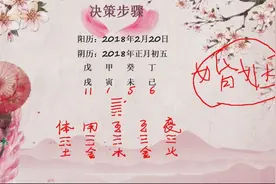 决策步骤
阳历：2018年2月20日
阴历：2018年正月初五
戊 甲 癸 丁
戌 寅 未 巳
11 1 5 6
体 用 互 互 变
土 金 木 金 火